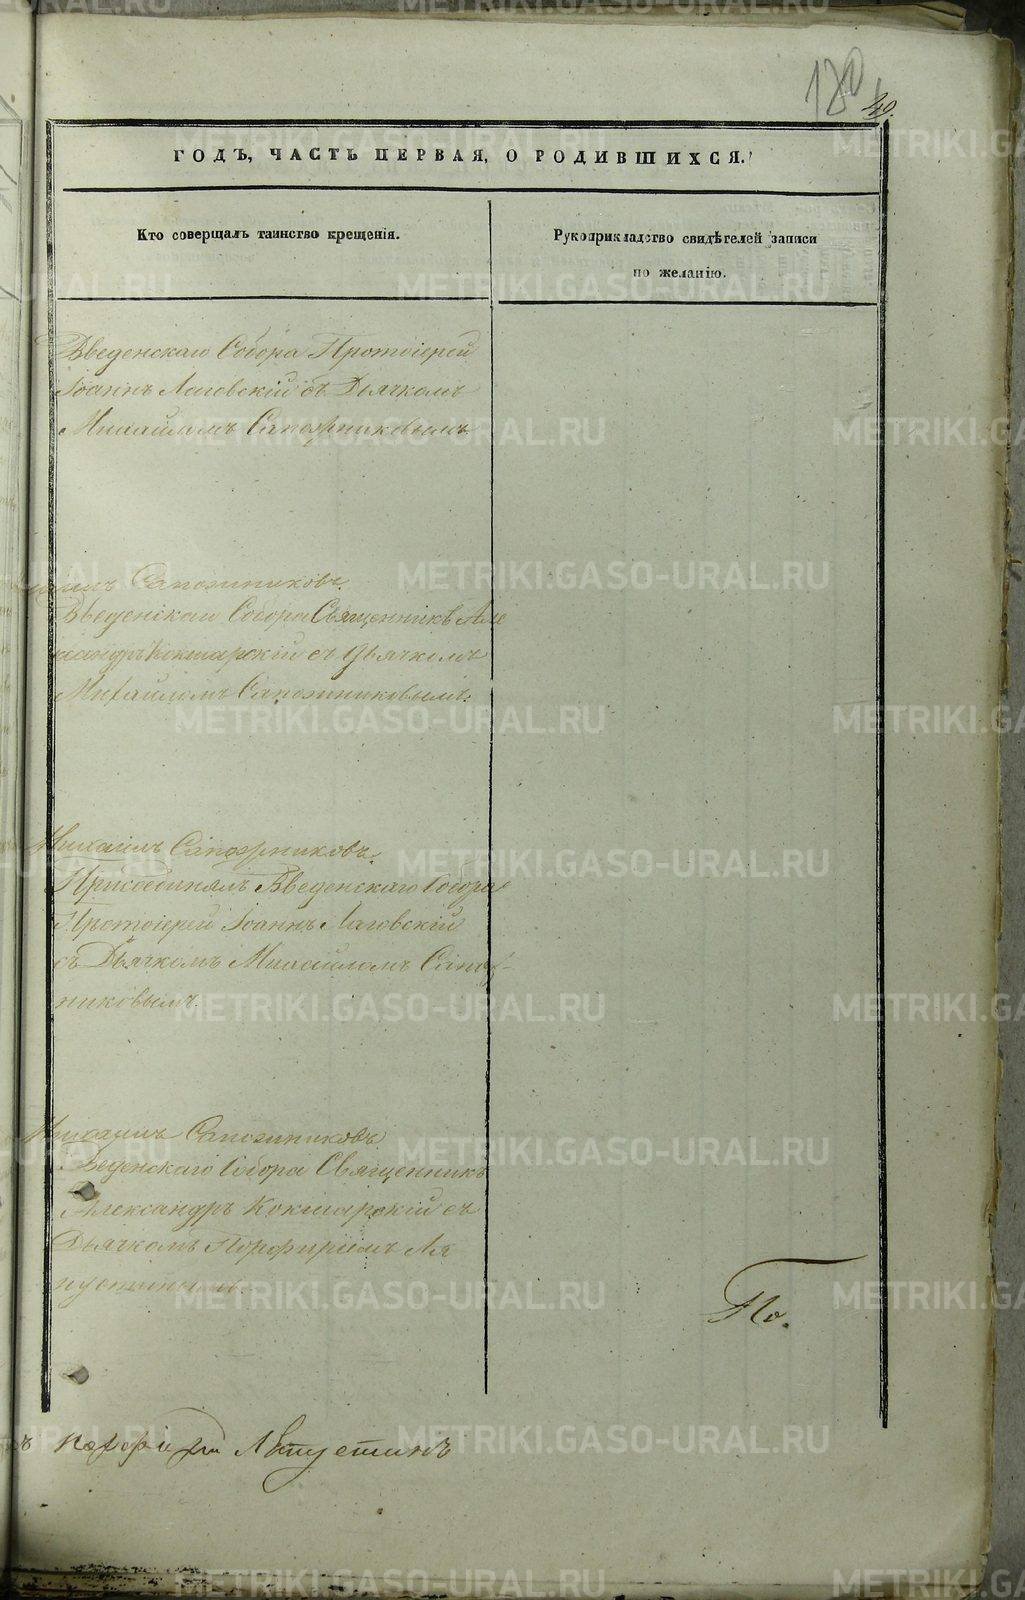 180
49.
ГОДЪ, ЧАСТЬ ПЕРВАЯ, О РОДИВШИХСЯ.
Кто совершалъ таинство крещенія.
Рукоприкладство свидѣтелей записи
по желанію.
Введенскаго Собора Протоіерей
Іоаннъ Лаговскій съ Дьячкомъ
Михайломъ Сапожниковымъ
Сапожниковъ.
Введенскаго Собора Священникъ Але
ксандръ Кокшарскій съ Дьячкомъ
Михайломъ Сапожниковымъ.
Михаилъ Сапожниковъ.
Присоединялъ Введенскаго Собора
Протоіерей Іоаннъ Лаговскій
съ Дьячкомъ Михайломъ Сапож-
никовымъ.
Михаилъ Сапожниковъ
Веденскаго Собора Священникъ
Александръ Кокшарскій съ
Дьячкомъ Порфиріемъ Ля
пустинымъ
По.
METRIKI.GASO-URAL.RU